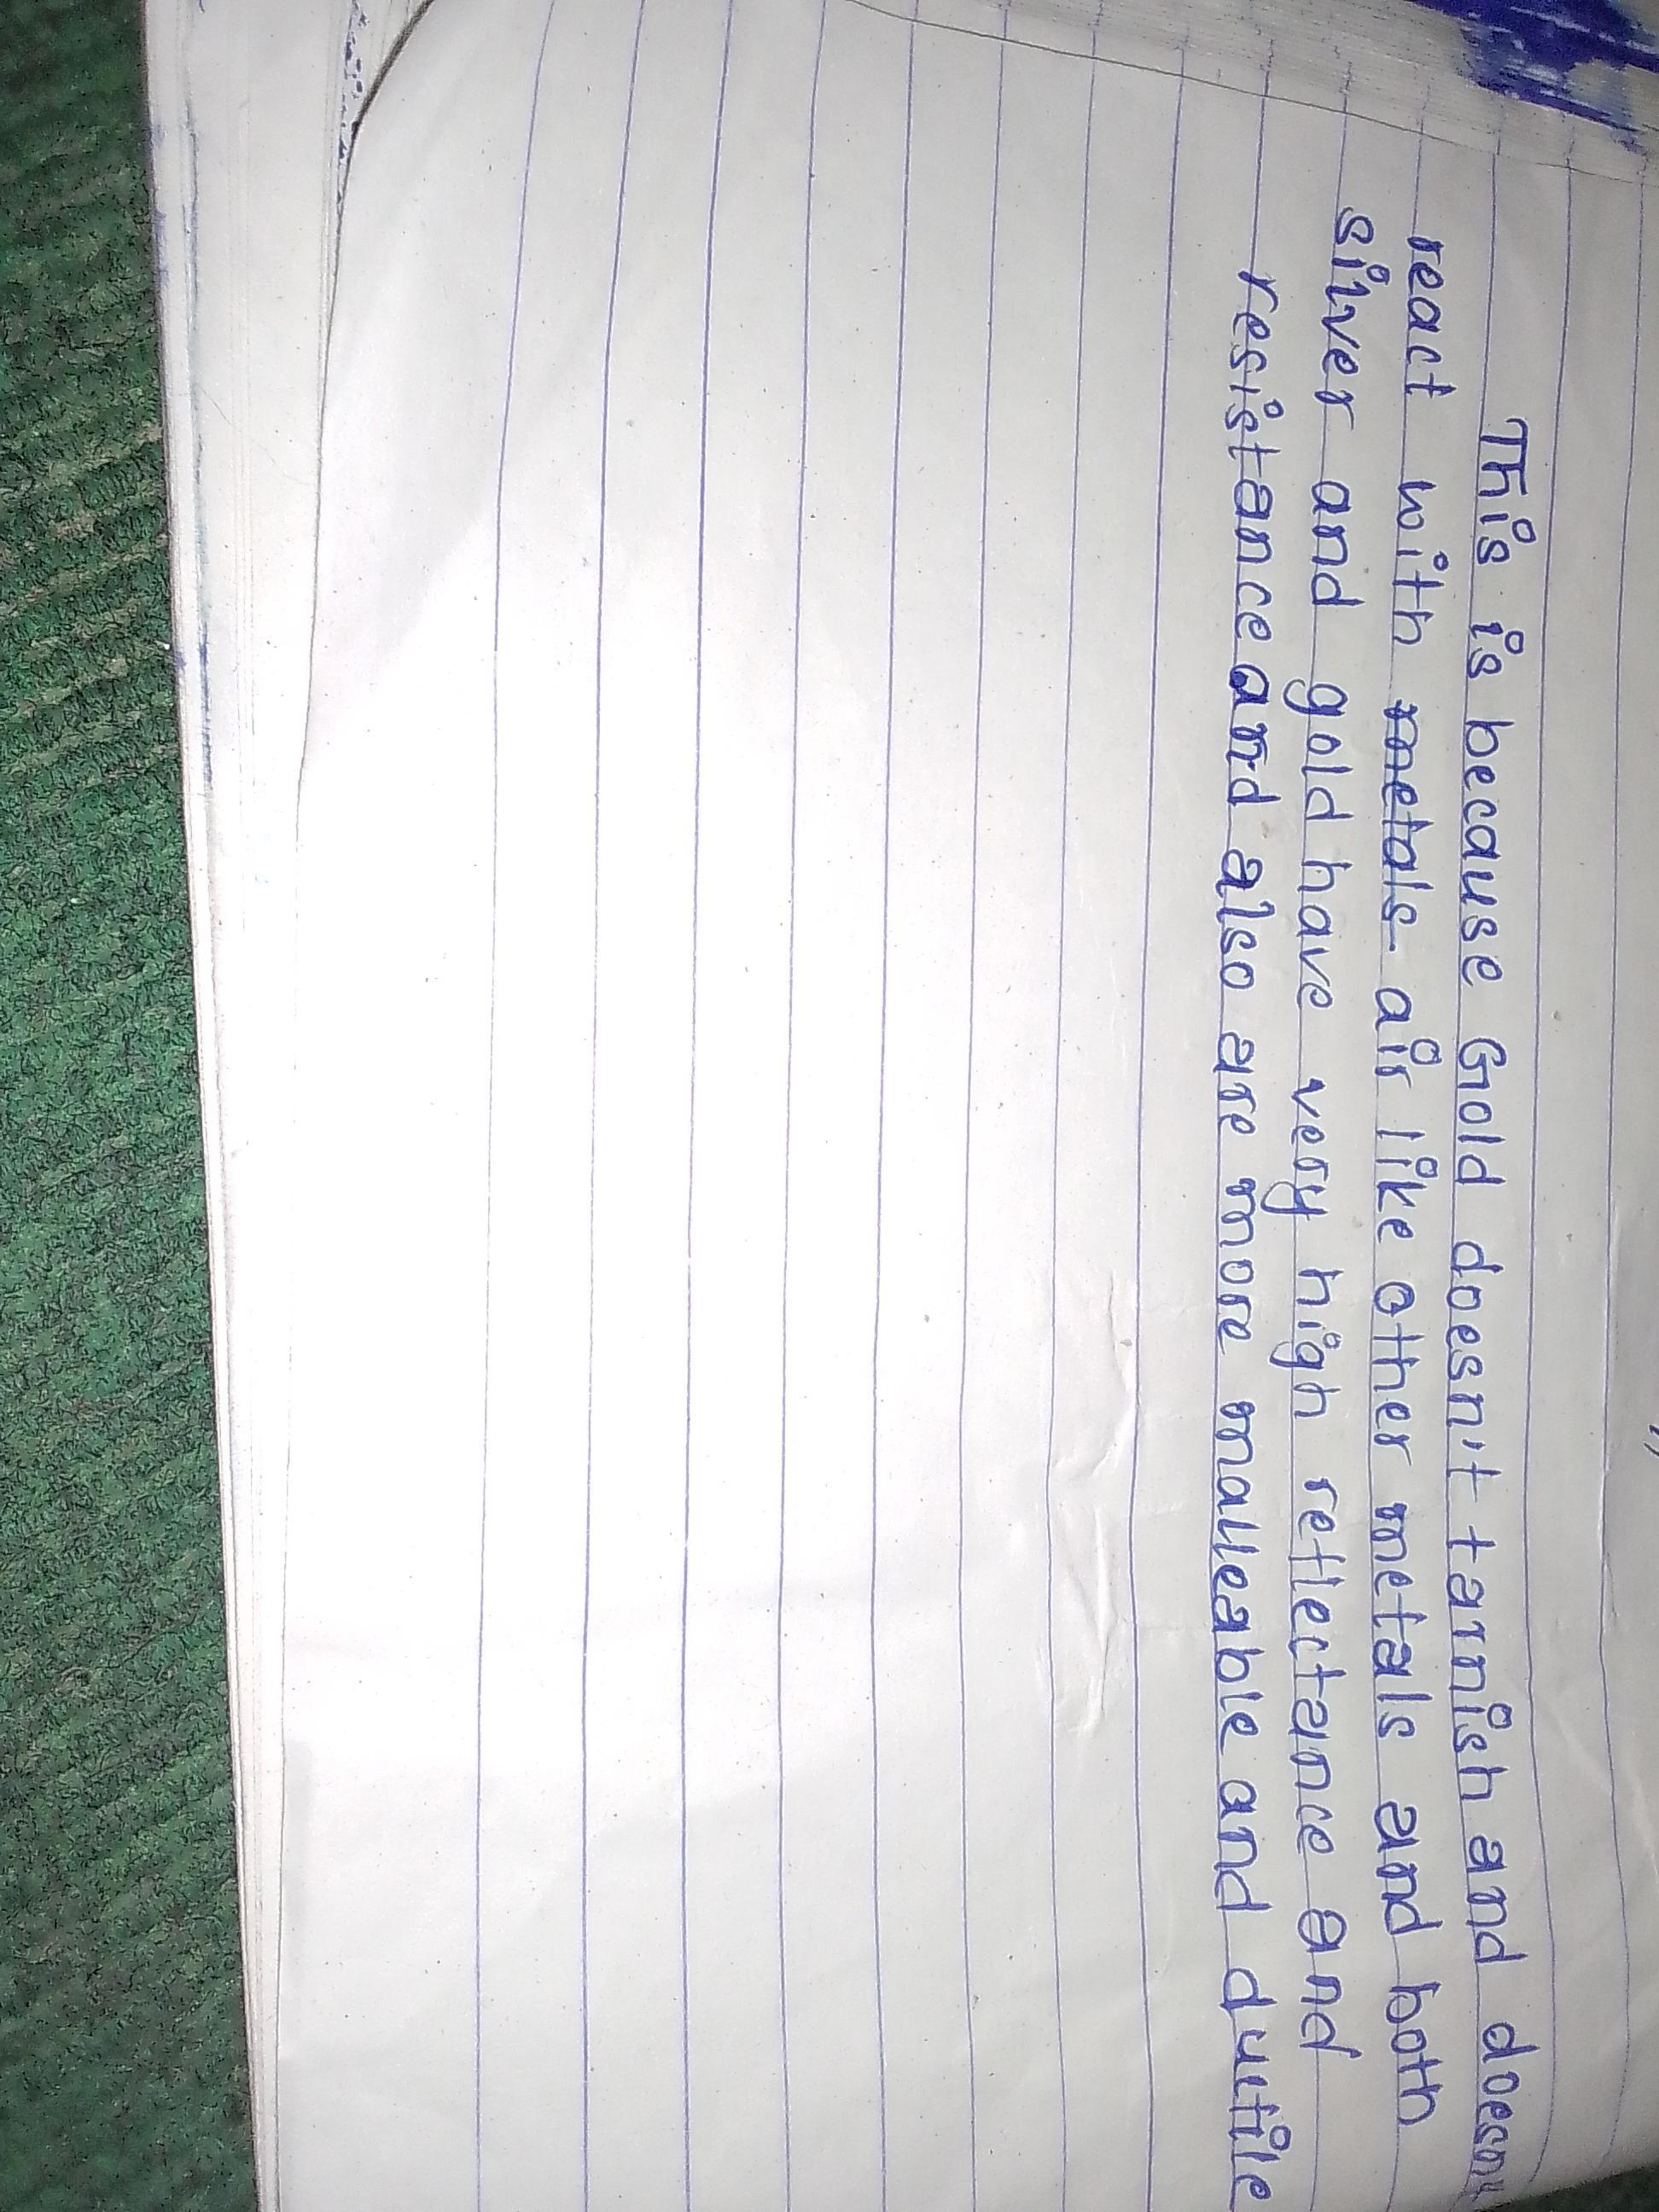 This is because Gold doesn't tarnish and doesn't
react with metals air like other metals and both
silver and gold have very high reflectance and
resistance and also are more malleable and ductile